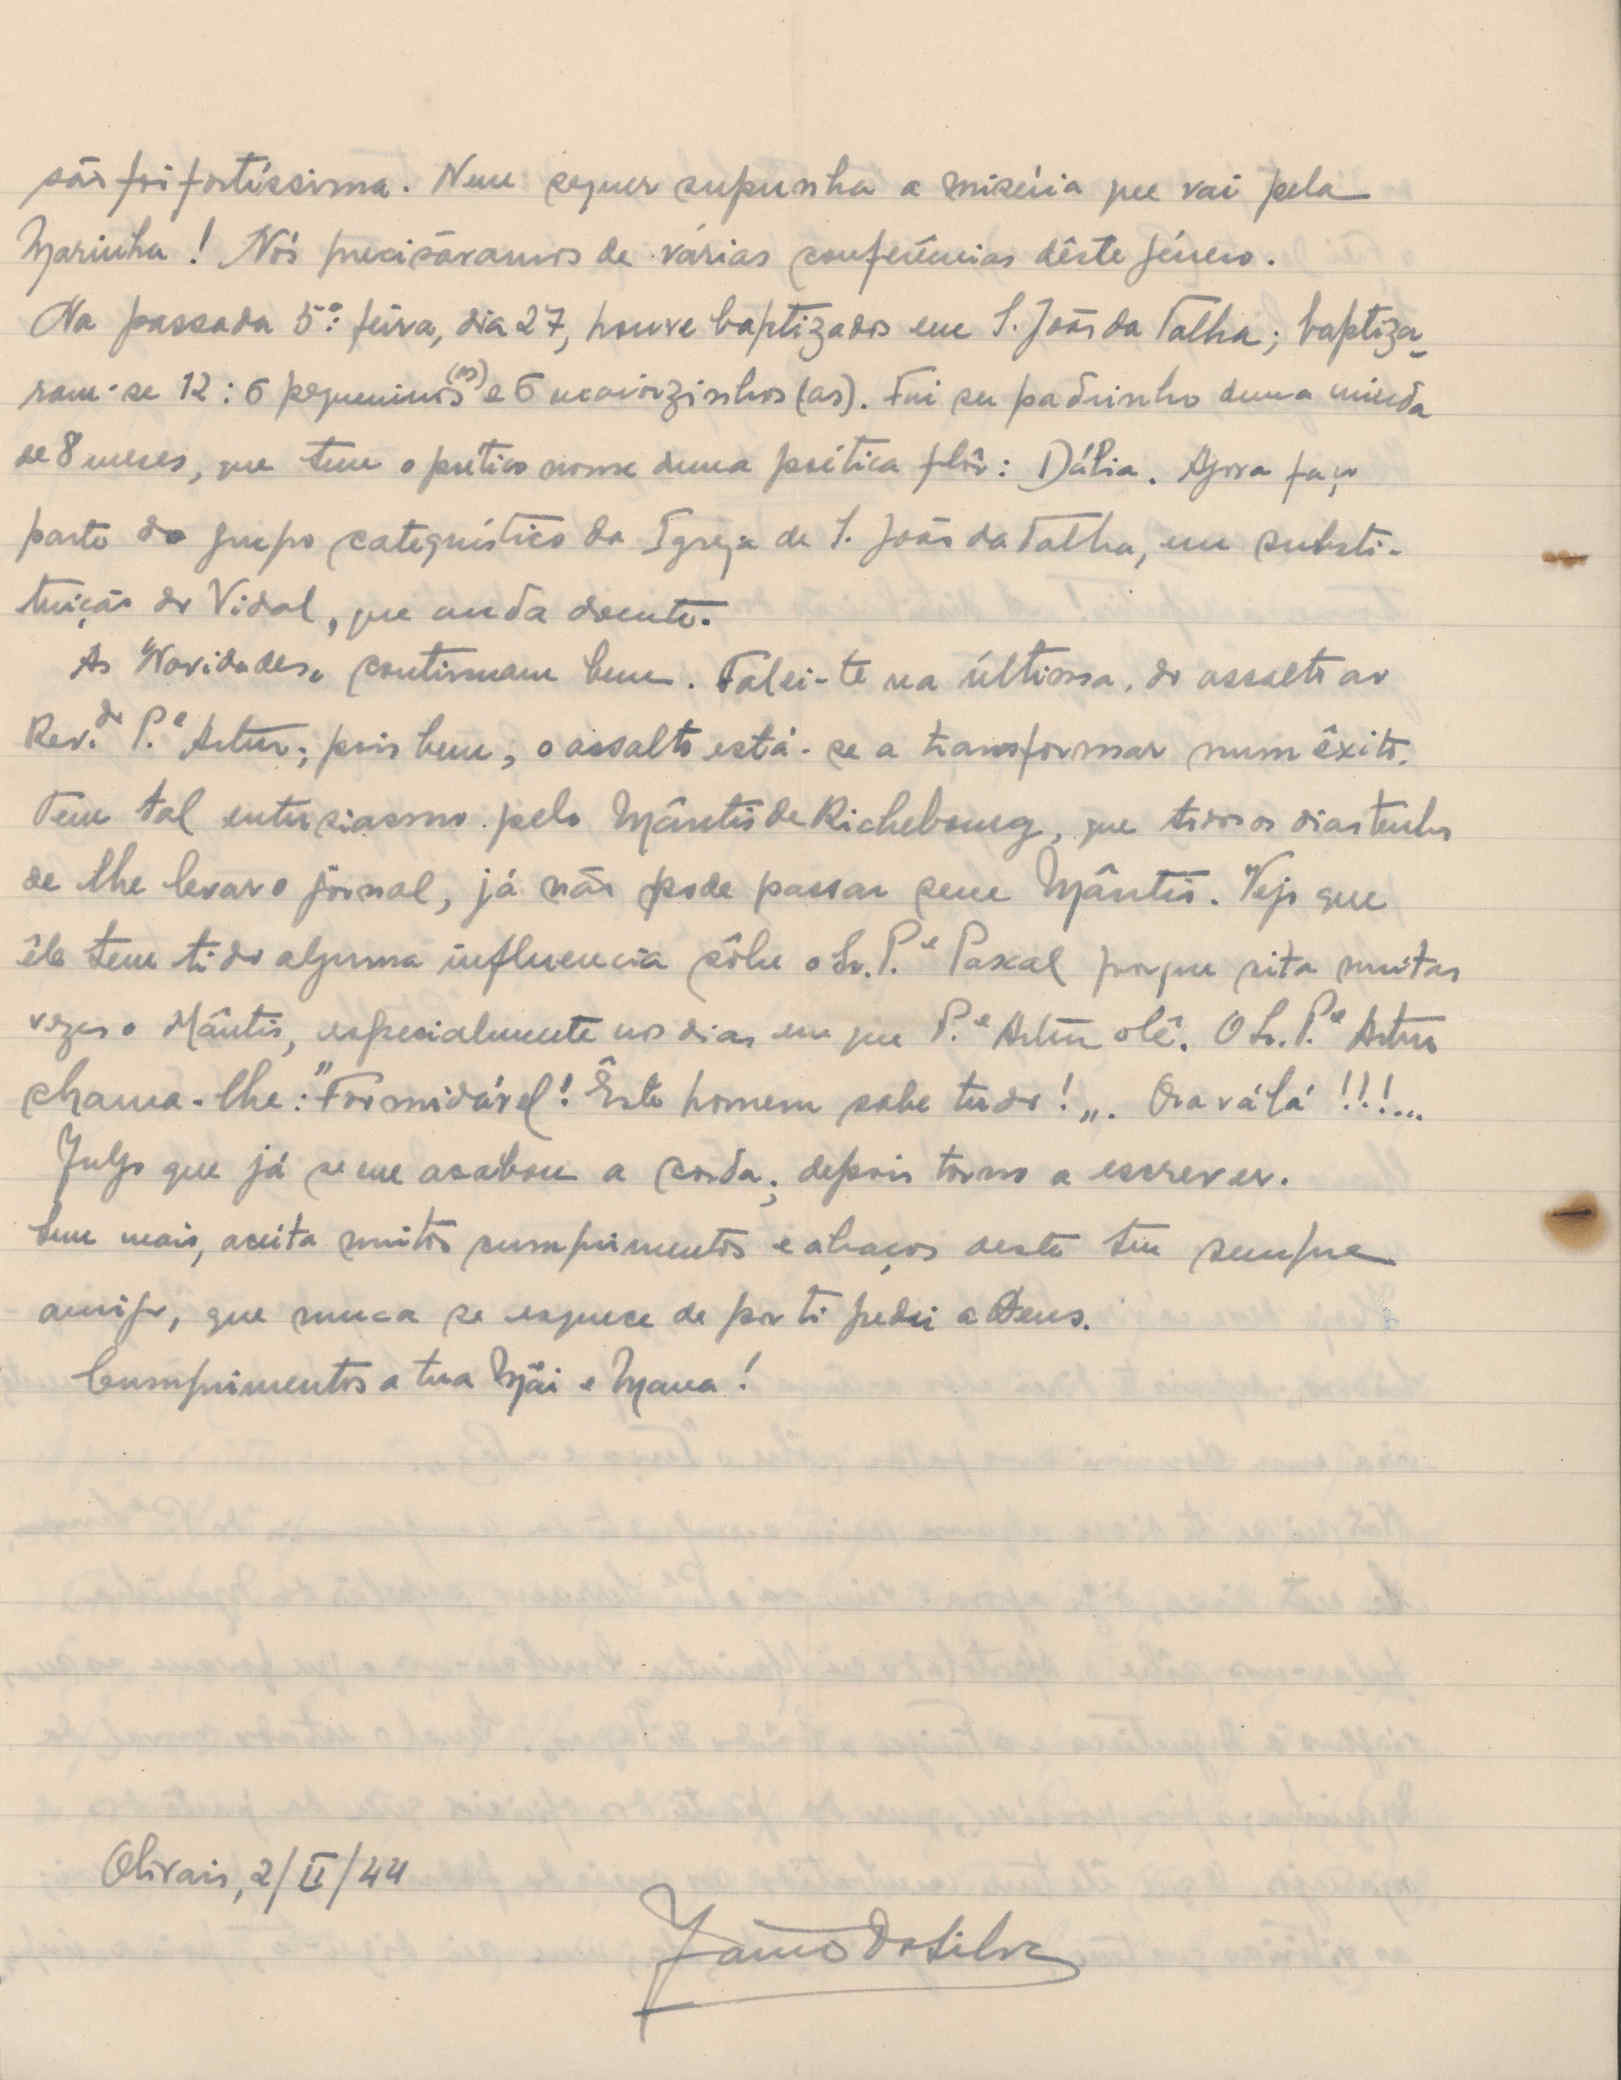 são foi fortíssima. Nem sequer supunha a miséria que vai pela
Marinha! Nós precisávamos de várias conferências dêste género.
Na passada 5ª feira, dia 27, houve baptizados em S. João da Talha; baptiza-
ram-se 12: 6 pequeninos (as) e 6 maiorzinhos (as). Fui eu padrinho duma miúda
de 8 meses, que tem o poético nome duma poética flôr: Dália. Agora faço
parte do grupo catequístico da Igreja de S. João da Talha, em substi-
tuição do Vidal, que anda doente.
As "Novidades" continuam bem. Falei-te na última, do assalto ao
Rev.do P.e Artur; pois bem, o assalto está-se a transformar num êxito.
Tem tal entusiasmo pelo Mântis de Richebourg, que todos os dias tenho
de lhe levar o jornal, já não pode passar sem Mântis. Vejo que
êle tem tido alguma influencia sôbre o Sr. P.e Pascal porque cita muitas
vezes o Mântis, especialmente nos dias em que P.e Artur o lê. O Sr. P.e Artur
chama-lhe: "Formidável! Êste homem sabe tudo!". Ora vá lá!!!...
Julgo que já se me acabou a corda; depois torno a escrever.
Sem mais, aceita muitos cumprimentos e abraços deste teu sempre
amigo, que nunca se esquece de por ti pedir a Deus.
Cumprimentos a tua Mãi e Mana!
Olivais, 2/II/44
da Silva